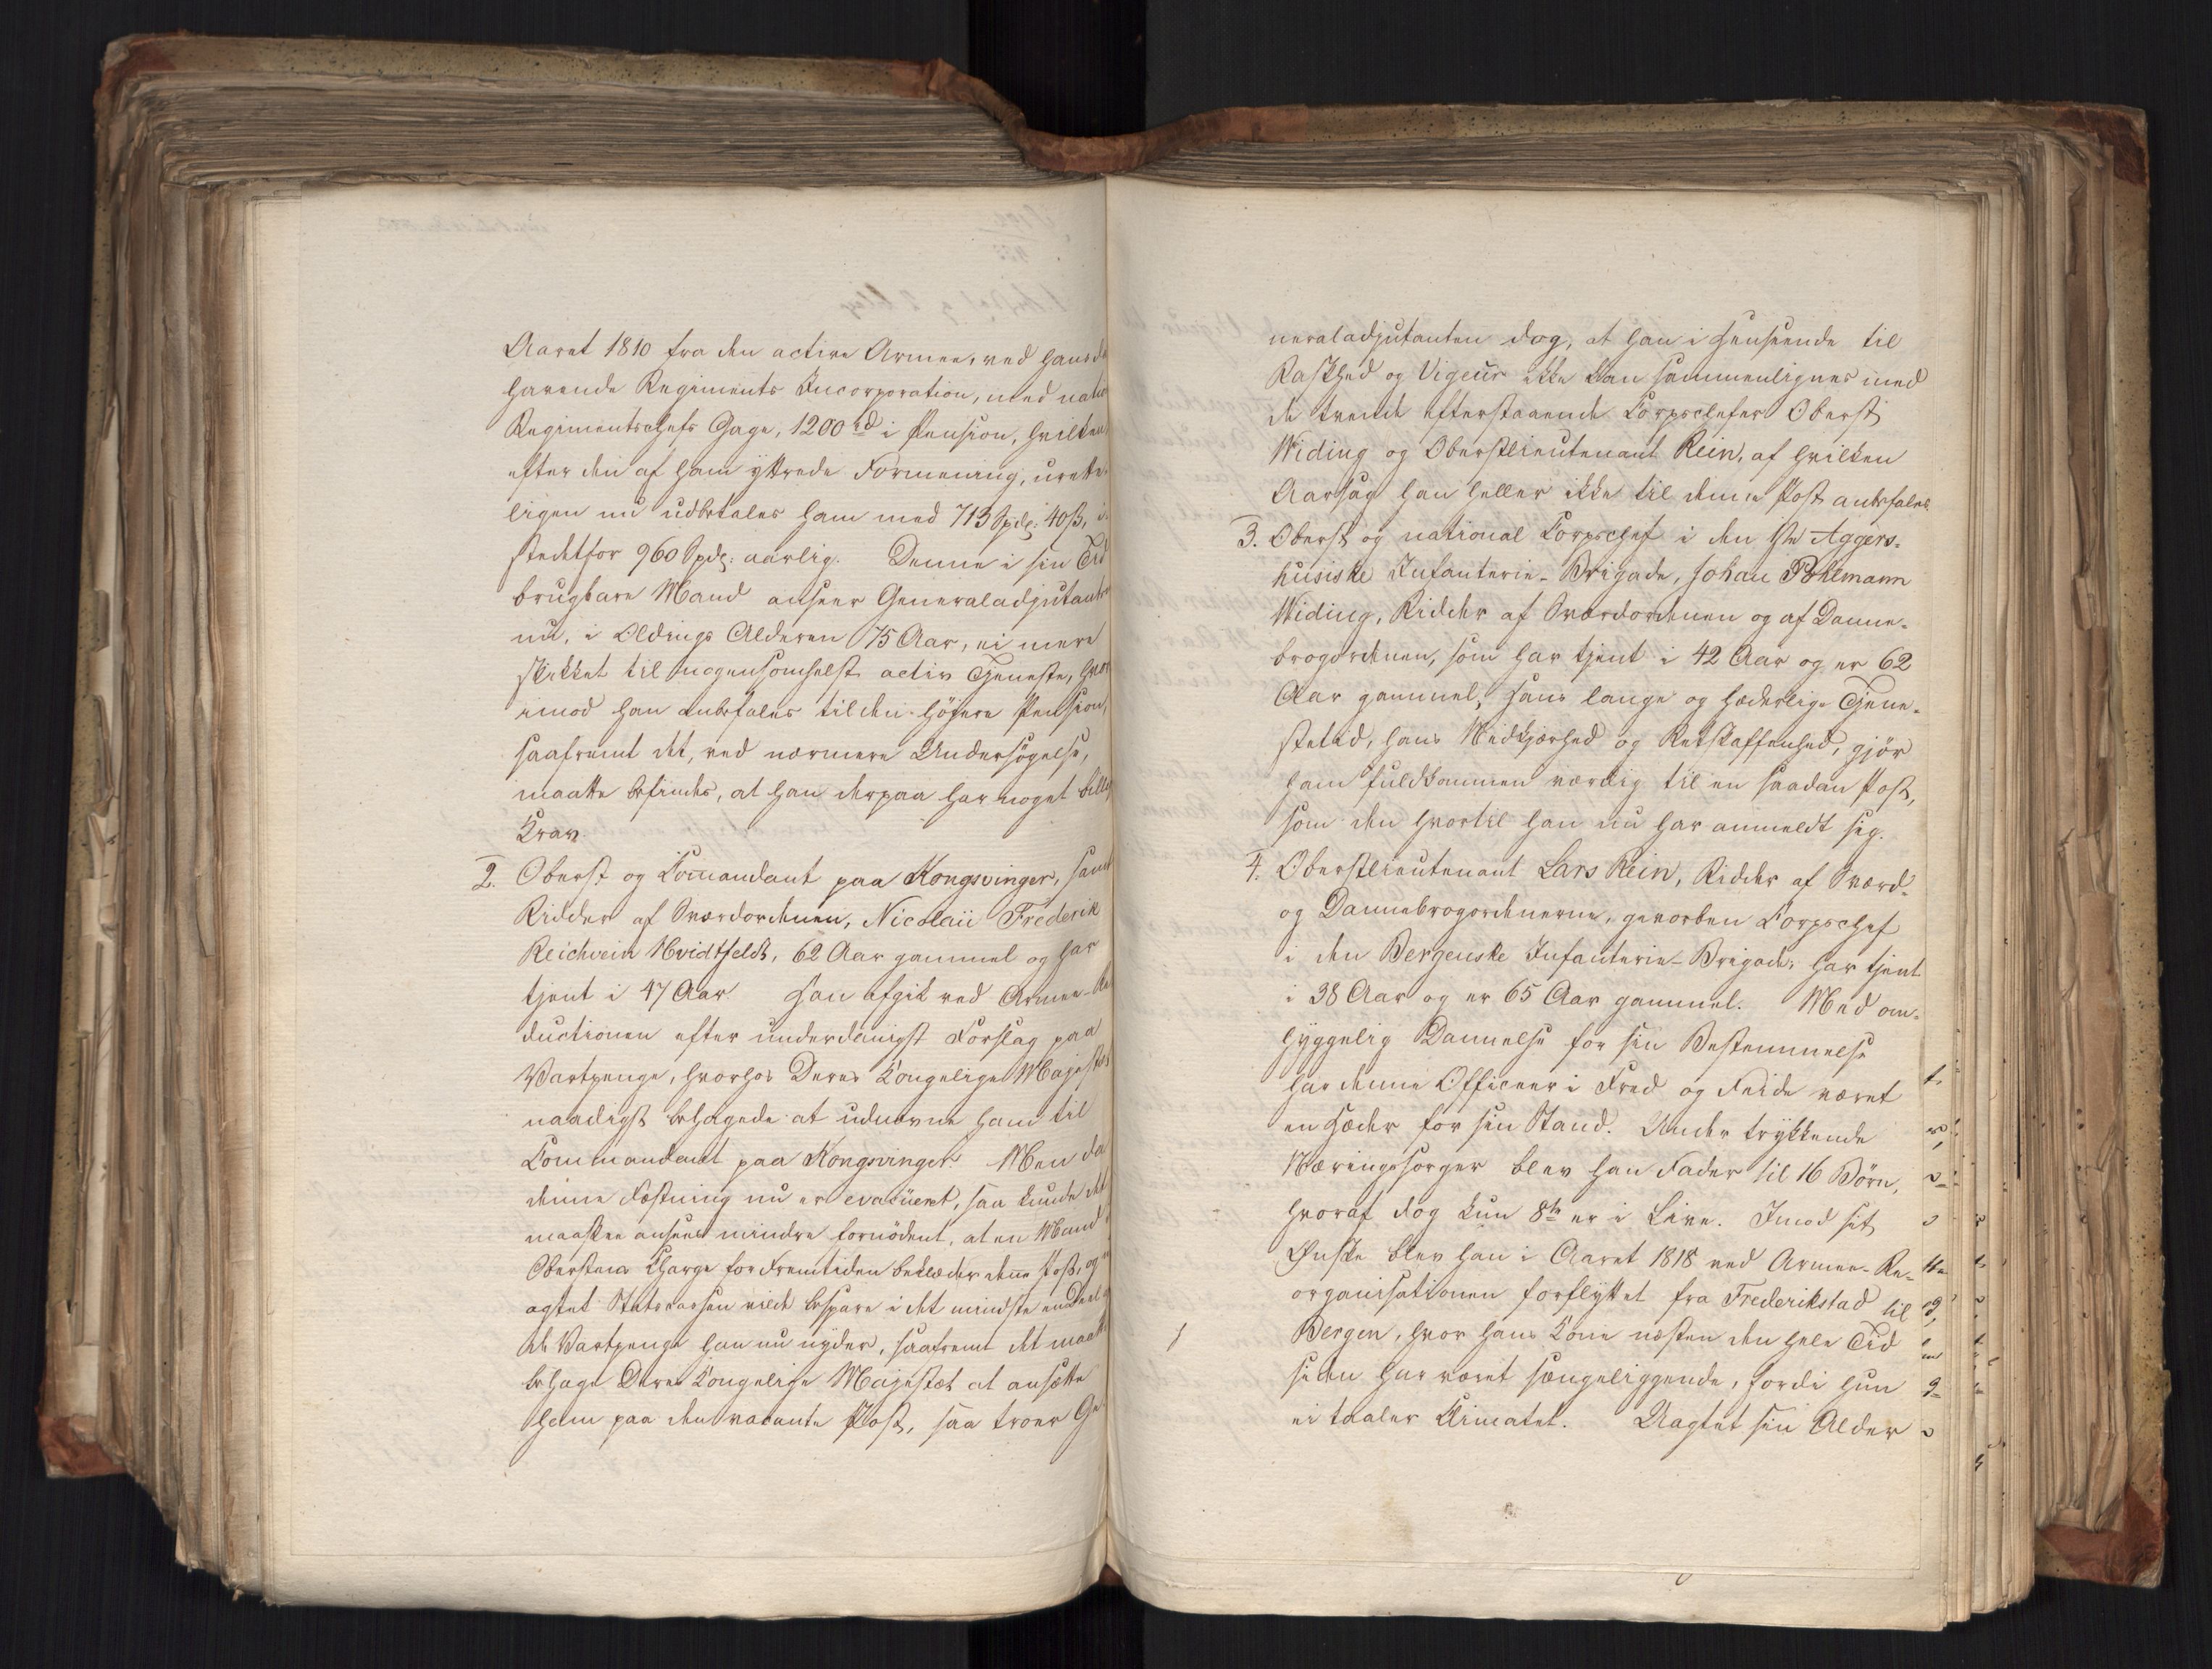 Aaret 1810 fra den active Armee, ved hans da
havende Regiments Incorporation, med natio
Regimentschefs Gage, 1200 rd i Pension, hvilken
efter den af ham yttrede Formening, urette-
ligen nu udbetales ham med 713 Spdlr: 40 ß, i
stedetfor 960 Spdlr: aarlig. Denne i sin Tid
brugbare Mand anseer Generaladjutanten
nu, i Oldings Alderen 75 Aar, ei mere
skikket til nogensomhelst activ Tjeneste, hvor
imod han anbefales til den höjere Pension,
saafremt det, ved nærmere Undersögelse,
maatte befindes, at han derpaa har noget billig
Krav.
2. Oberst og Comandant paa Kongsvinger, samt
Ridder af Sværdordenen, Nicolaii Frederik
Reichwein Hvidtfeldt, 62 Aar gammel og har
tjent i 47 Aar. Han afgik ved Armee-Re
ductionen efter underdanigst Forslag paa
Vartpenge, hvorhos Deres Kongelige Majestæt
naadigst behagede at udnævne ham til
Commandant paa Kongsvinger. Men da
denne Fæstning nu er evacüeret, saa kunde det
maaskee ansees mindre fornödent, at en Mand
Oberstens Charge for Fremtiden beklæder denne Post, og
agtet Statscassen vilde bespare i det mindste en Deel
de Vartpenge han nu nyder, saafremt det maatte
behage Deres Kongelige Majestæt at ansætte
ham paa den vacante Post, saa troer Ge-
neraladjutanten dog, at han i Henseende til
Raskhed og Vigeur ikke kan sammenlignes med
de tvende efterstaaende Corpschefer Oberst
Widing og Oberstlieutenant Rein, af hvilken
Aarsag han heller ikke til denne Post anbefales
3. Oberst og national Corpschef i den 1ste Aggers-
husiske Infanterie-Brigade, Johan Pohlmann
Widing, Ridder af Sværdordenen og af Danne-
brogordenen, som har tjent i 42 Aar og er 62
Aar gammel, hans lange og hæderlige Tjene-
stetid, hans Nidkjærhed og Retskaffenhed, gjör
ham fuldkommen værdig til en saadan Post,
som den hvortil han nu har anmeldt sig.
4. Oberstlieutenant Lars Rein, Ridder af Sværd-
og Dannebrogordenerne, gevorben Corpschef
i den Bergenske Infanterie-Brigade, har tjent
i 38 Aar og er 65 Aar gammel. Med om-
hyggelig Dannelse for sin Bestemmelse
har denne Officeer i Fred og Feide været
en Hæder for sin Stand. Under trykkende
Næringssorger blev han Fader til 16 Börn,
hvoraf dog kun 8te er i Live. Imod sit
Ønske blev han i Aaret 1818 ved Armee-Re-
organisationen forflyttet fra Frederikstad til
Bergen, hvor hans Kone næsten den hele Tid
siden har været sængeliggende, fordi hun
ei taaler Climatet. Uagtet sin Alder